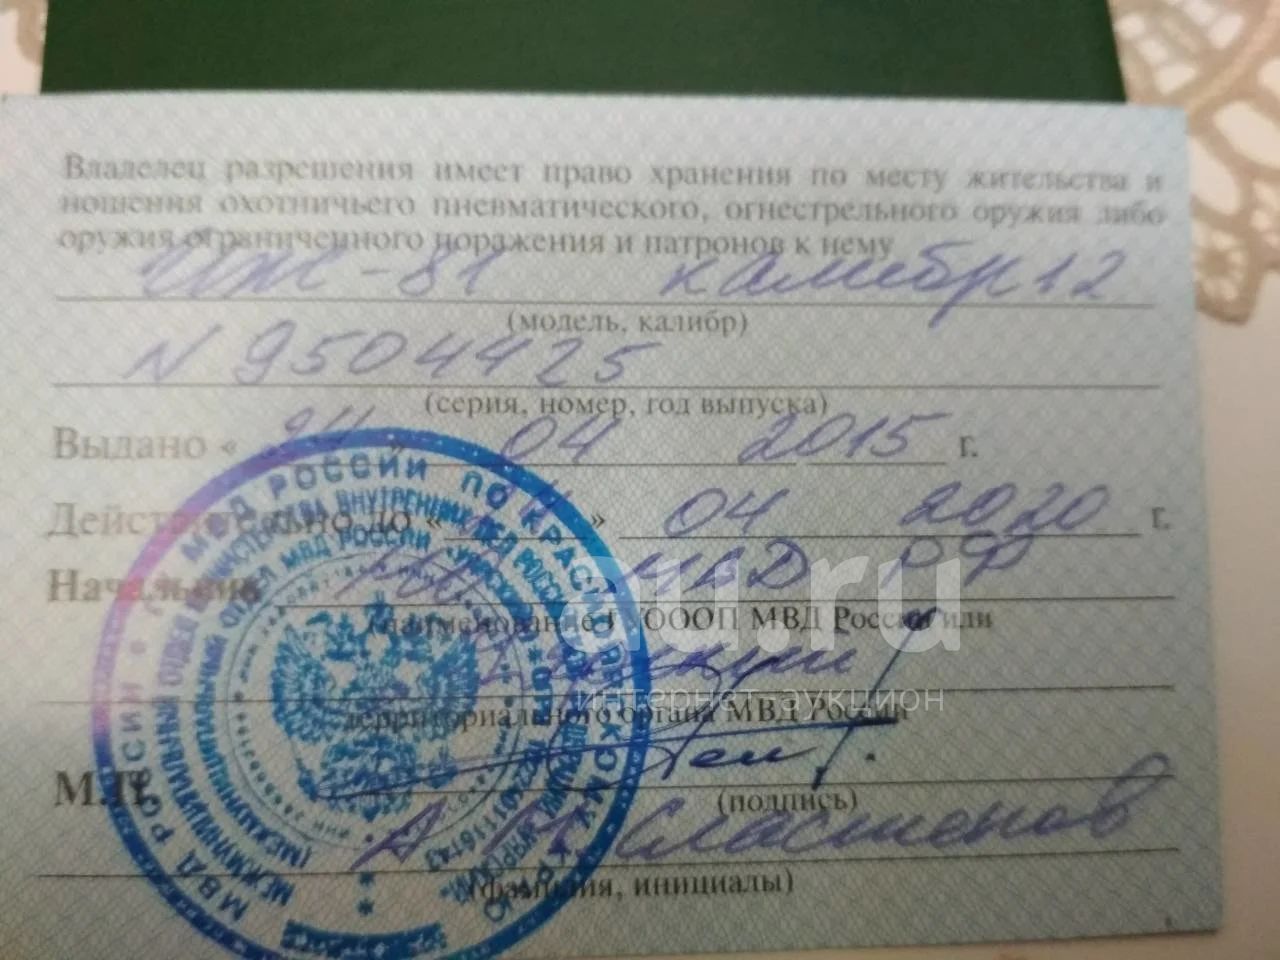 Владелец разрешения имеет право хранения по месту жительства и
ношения охотничьего пневматического, огнестрельного оружия либо
оружия ограниченного поражения и патронов к нему
ИЖ-81 калибр 12
(модель, калибр)
N 9504425
(серия, номер, год выпуска)
Выдано « 24 » 04 2015 г.
Действительно до « » 04 2020 г.
Начальник МВД РФ
(наименование ГУОООП МВД России или
территориального органа МВД России
au.ru
интернет-аукцион
М.П.
(подпись)
А Сластенов
(фамилия, инициалы)
МВД РОССИИ ПО КРАСНОЯРСКОМУ КРАЮ